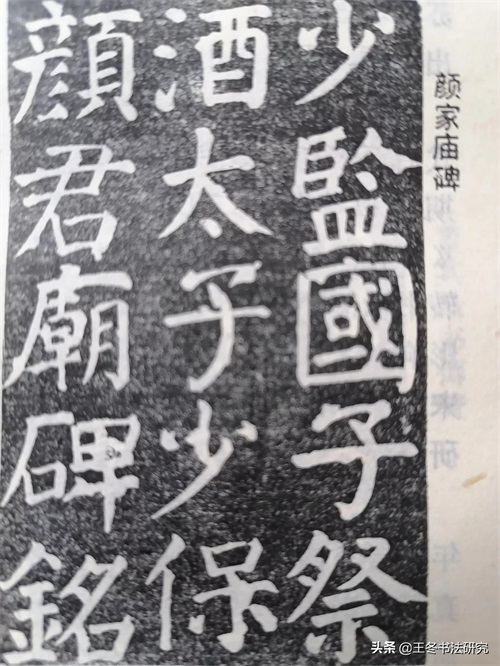 颜家庙碑
少監國子祭
酒太子少保
顔君廟碑銘
头条 @王冬书法研究